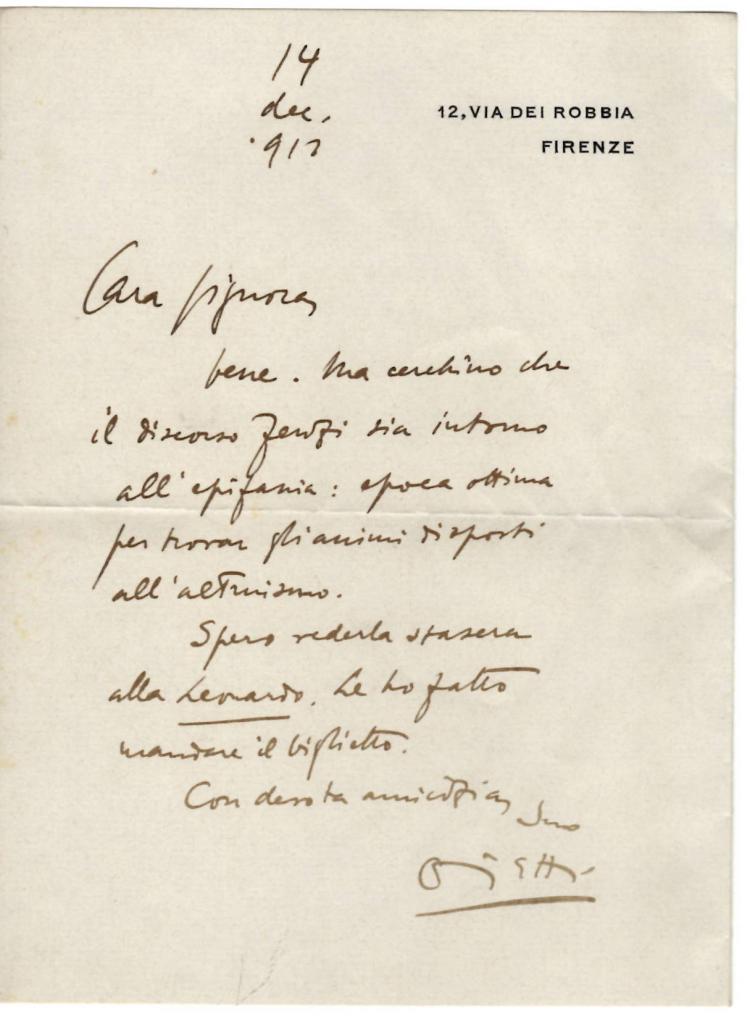 14
dec.
912
12, VIA DEI ROBBIA
FIRENZE
Cara signora,
bene. Ma cerchino che
il discorso sia intorno
all'epifania: epoca ottima
per trovar gli animi disposti
all'altruismo.
Spero vederla stasera
alla Leonardo. Le ho fatto
mandare il biglietto.
Con devota amicizia,
Suo
Ojetti